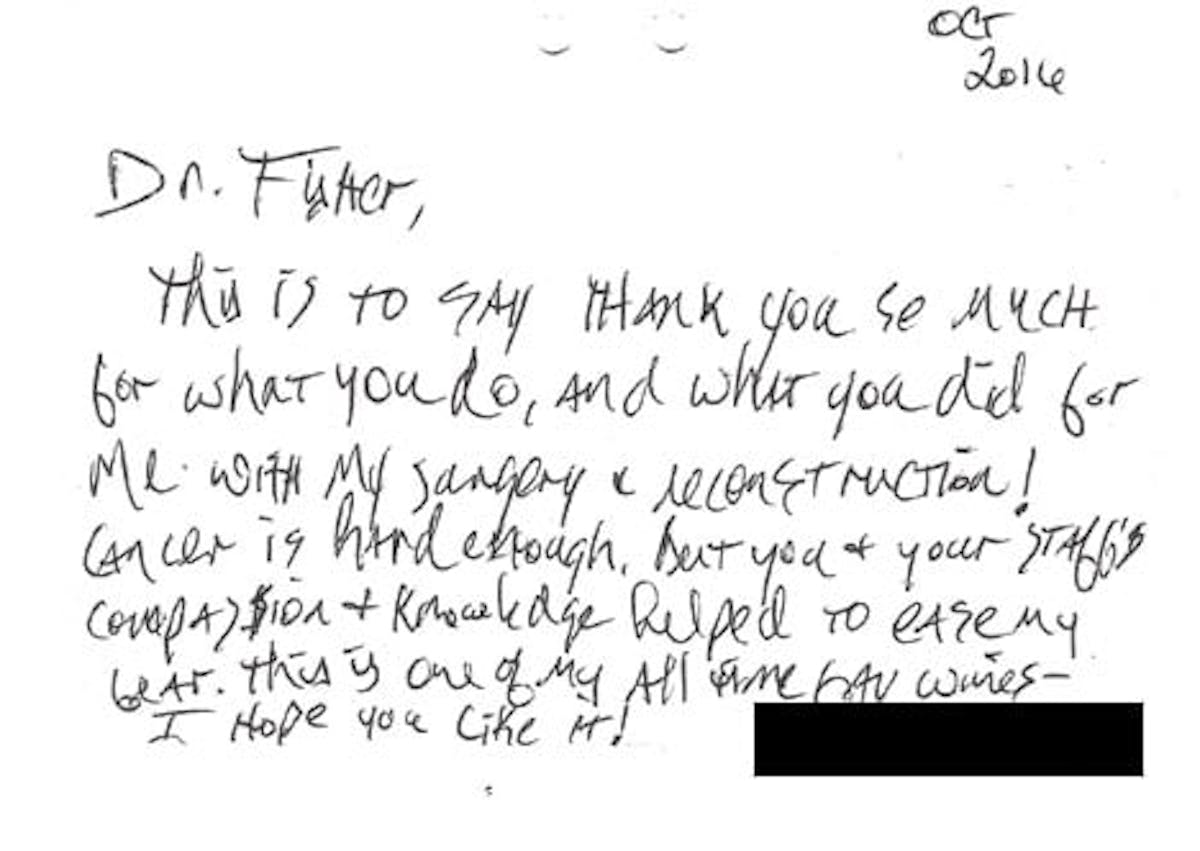 OCT
2016
Dr. Fisher,
This is to say thank you so much
for what you do, and what you did for
me with my surgery & reconstruction!
Cancer is hard enough, but you + your staff's
compassion + knowledge helped to ease my
fear. This is one of my all time fav wines-
I hope you like it!